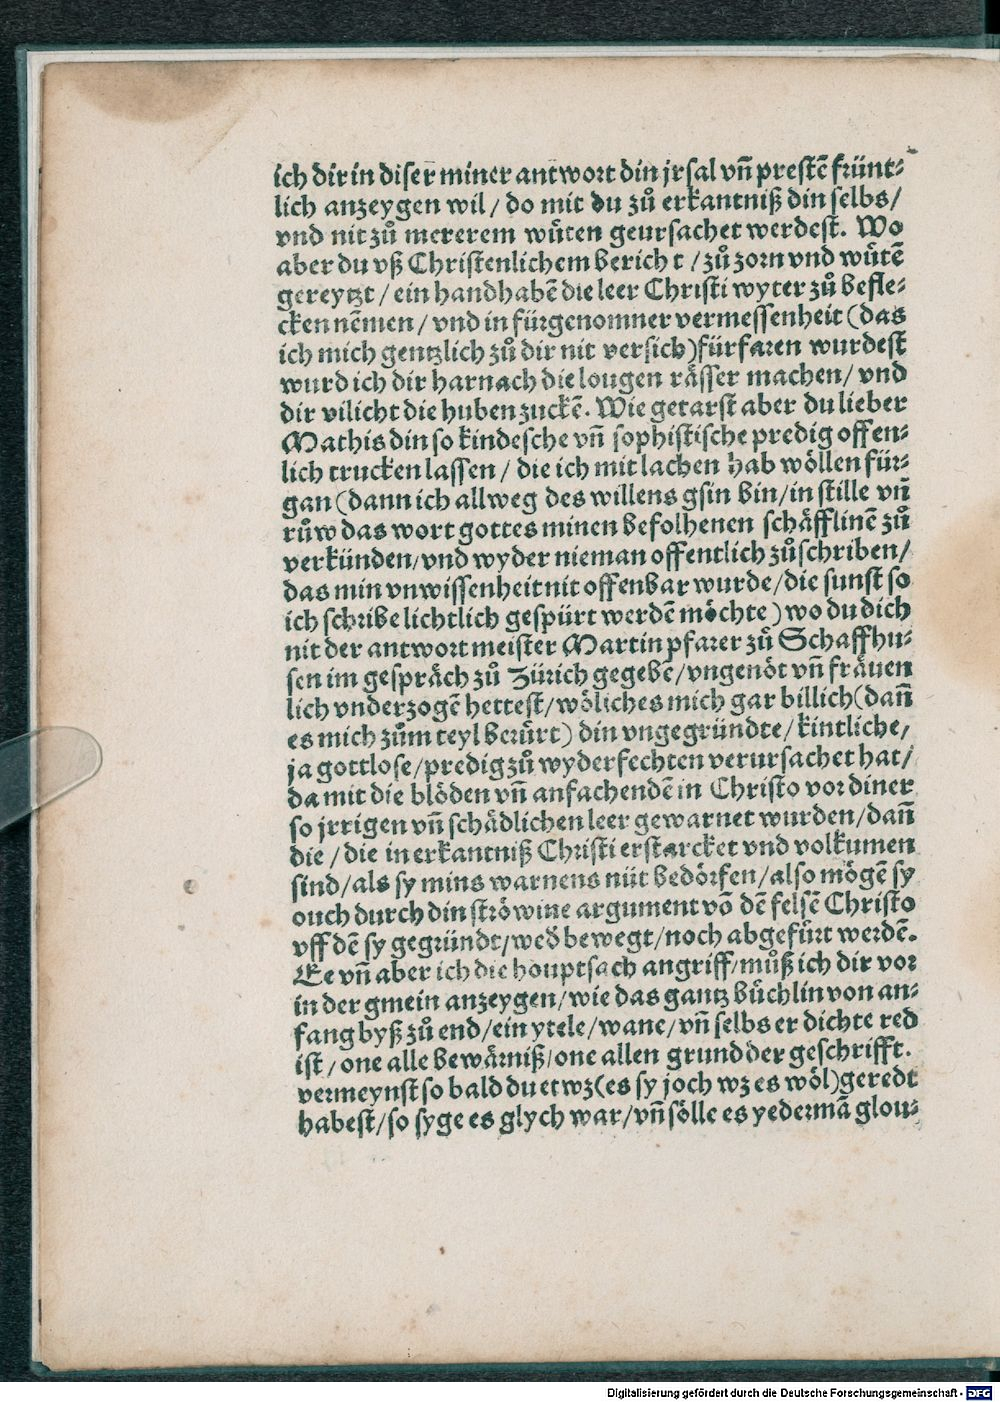 ich dir in diser miner antwort din jrsal vn̄ prestē frünt⸗
lich anzeygen wil / do mit du zů erkantniß din selbs /
vnd nit zů mererem wüten geursachet werdest. Wo
aber du vß Christenlichem bericht / zů zorn vnd wütē
gereytzt / ein handhabē die leer Christi wyter zů befle⸗
cken nēmen / vnd in fürgenomner vermessenheit (das
ich mich gentzlich zů dir nit versich) fürfaren wurdest
wurd ich dir harnach die lougen rässer machen / vnd
dir vilicht die huben zuckē. Wie getarst aber du lieber
Mathis din so kindesche vn̄ sophistische predig offen⸗
lich trucken lassen / die ich mit lachen hab wöllen für⸗
gan (dann ich allweg des willens gsin bin / in stille vn̄
růw das wort gottes minen befolhenen schäfflinē zů
verkünden / vnd wyder nieman offentlich zůschriben /
das min vnwissenheit nit offenbar wurde / die sunst so
ich schribe lichtlich gespürt werdē möchte) wo du dich
nit der antwort meister Martin pfarer zů Schaffhu⸗
sen im gespräch zů Zürich gegebē / vngenöt vn̄ fräuen
lich vnderzogē hettest / wöliches mich gar billich (dan̄
es mich zům teyl berürt) din vngegründte / kintliche /
ja gottlose / predig zů wyderfechten verursachet hat /
da mit die blöden vn̄ anfachendē in Christo vor diner
so jrrigen vn̄ schädlichen leer gewarnet wurden / dan̄
die / die in erkantniß Christi erstarcket vnd volkumen
sind / als sy mins warnens nüt bedörfen / also mögē sy
ouch durch din ströwine argument vō dē felsē Christo
vff dē sy gegründt / wed̄ bewegt / noch abgefürt werdē.
Ee vn̄ aber ich die houptsach angriff / můß ich dir vor
in der gmein anzeygen / wie das gantz büchlin von an⸗
fang byß zů end / ein ytele / wane / vn̄ selbs erdichte red
ist / one alle bewärniß / one allen grund der geschrifft.
vermeynst so bald du etwz (es sy joch wz es wöl) geredt
habest / so syge es glych war / vn̄ sölle es yedermā glou⸗
Digitalisierung gefördert durch die Deutsche Forschungsgemeinschaft - DFG